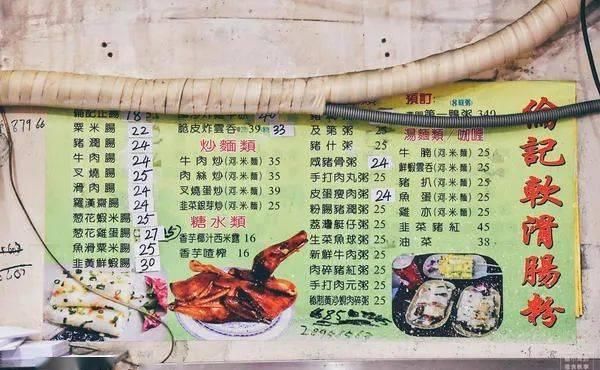 粟米腸 22
豬潤腸 24
牛肉腸 24
叉燒腸 25
滑肉腸 24
羅漢齋腸 24
葱花蝦米腸 25
葱花雞蛋腸 27
魚滑粟米腸 25
韭黃鮮蝦腸 30
脆皮炸雲吞 39 33
炒麵類
牛肉炒(河米麵) 35
肉絲炒(河米麵) 35
叉燒蛋炒(河米麵) 39
韭菜銀芽炒(河米麵) 25
糖水類
香芋椰汁西米露 16
香芋喳榨 16
及第粥 25
豬什粥 25
咸豬骨粥 24
手打肉丸粥 25
皮蛋瘦肉粥 24
粉腸豬潤粥 25
荔灣艇仔粥 25
生菜魚球粥 25
新鮮牛肉粥 25
肉碎豬紅粥 25
手打肉元粥 25
預訂:
第一鴨粥 340
湯麵類/咖喱
牛腩(河米麵) 25
鮮蝦雲吞(河米麵) 25
豬扒(河米麵) 25
魚蛋(河米麵) 25
雞亦(河米麵) 25
韭菜豬紅 45
油菜 38
倫記軟滑腸粉